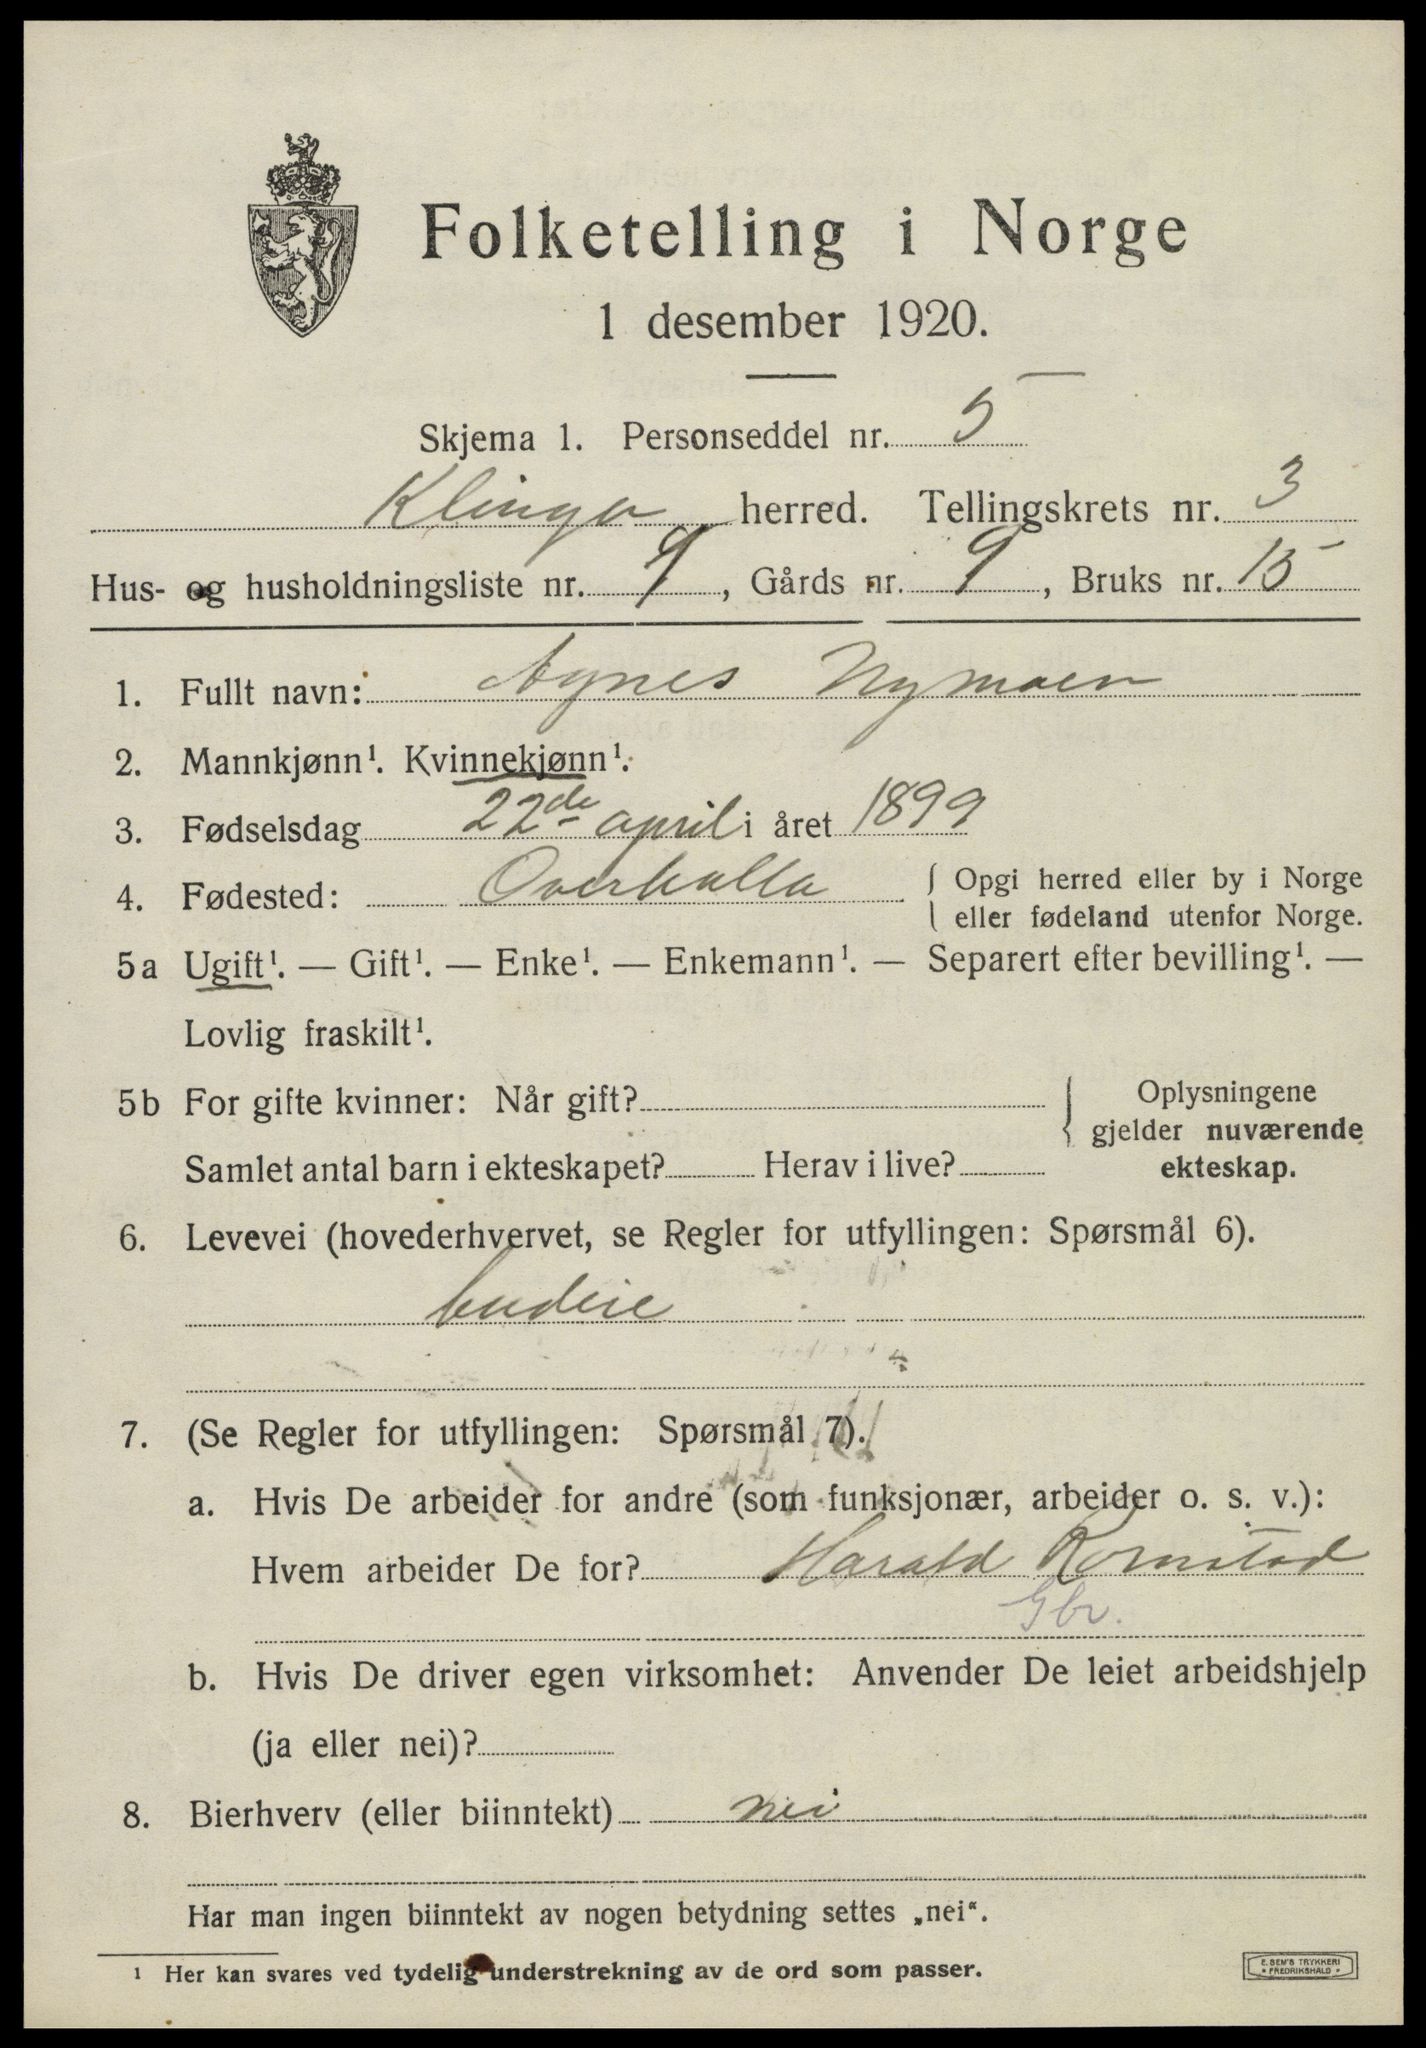 Folketelling i Norge
1 desember 1920.
Skjema 1. Personseddel nr. 5
Klinga herred. Tellingskrets nr. 3
Hus- og husholdningsliste nr. 9, Gårds nr. 9, Bruks nr. 15
1. Fullt navn: Agnes Nymoen
2. Mannkjønn¹. Kvinnekjønn¹.
3. Fødselsdag 22de april i året 1899
4. Fødested: Overhalla { Opgi herred eller by i Norge
eller fødeland utenfor Norge.
5a Ugift¹. — Gift¹. — Enke¹. — Enkemann¹. — Separert efter bevilling¹. —
Lovlig fraskilt¹.
5b For gifte kvinner: Når gift? { Oplysningene
gjelder nuværende
Samlet antal barn i ekteskapet? Herav i live? ekteskap.
6. Levevei (hovederhvervet, se Regler for utfyllingen: Spørsmål 6).
budeie
7. (Se Regler for utfyllingen: Spørsmål 7).
a. Hvis De arbeider for andre (som funksjonær, arbeider o. s. v.):
Hvem arbeider De for? Harald Romstad
Gbr.
b. Hvis De driver egen virksomhet: Anvender De leiet arbeidshjelp
(ja eller nei)?
8. Bierhverv (eller biinntekt) nei
Har man ingen biinntekt av nogen betydning settes „nei“.
¹ Her kan svares ved tydelig understrekning av de ord som passer.
E. SEM'S TRYKKERI
FREDRIKSHALD